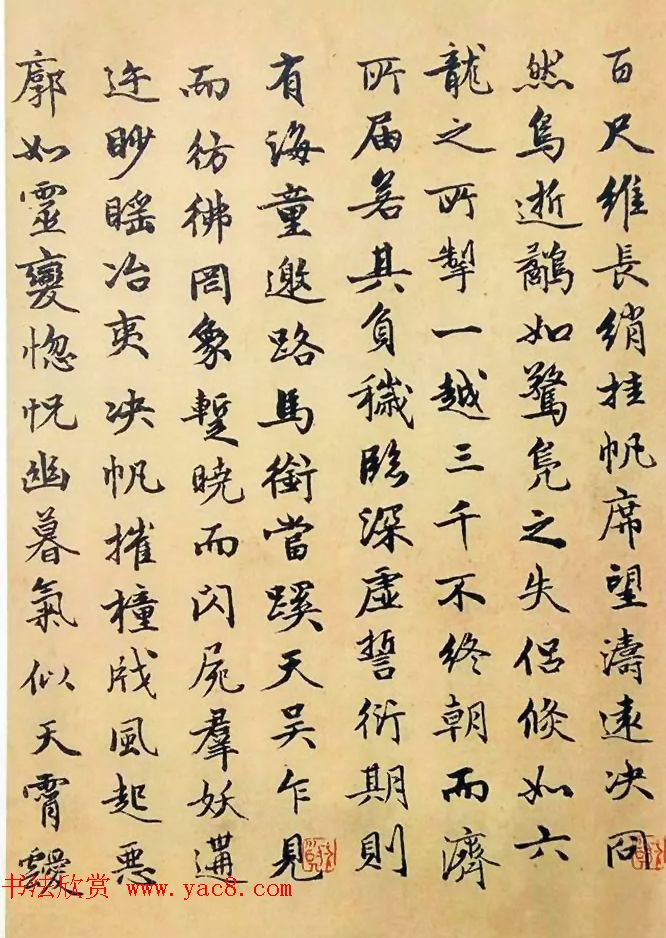 百尺維長綃挂帆席望濤遠决冏
然鳥逝鷸如驚鳧之失侶倐如六
龍之所掣一越三千不終朝而濟
所届若其負穢臨深虛誓衍期則
有海童邀路馬銜當蹊天吴乍見
而彷彿罔象暫曉而閃屍羣妖遘
迕眇䁘冶夷决帆摧橦戕風起惡
廓如靈變惚怳幽暮氣似天霄靉
书法欣赏 www.yac8.com